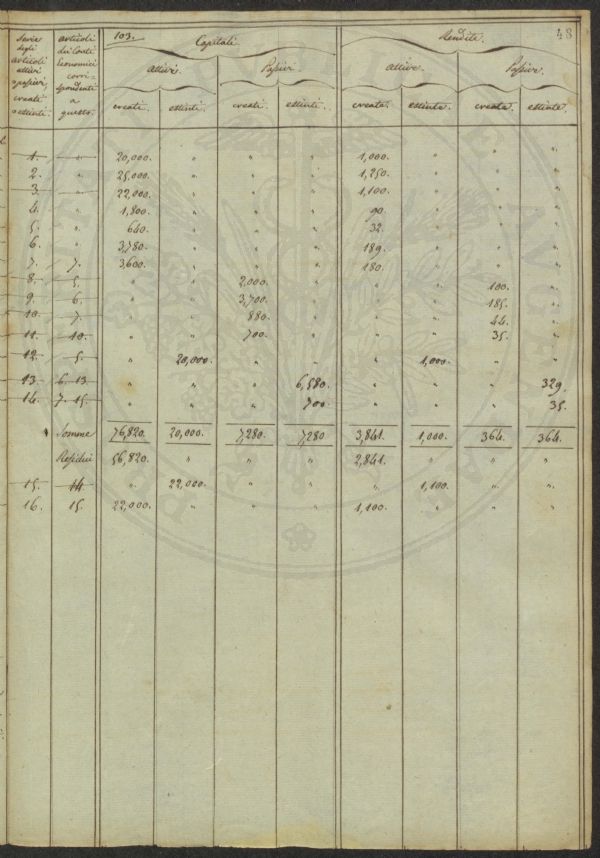 103. 48
Serie degli articoli attivi, e passivi, creati, o estinti. articoli dei Conti Economici corrispondenti a questo. Capitali. Rendite.
attivi. Passivi. attive. Passive.
creati. estinti. creati. estinti. create. estinte. create. estinte.
1. " 20,000. " " " 1,000. " " "
2. " 25,000. " " " 1,250. " " "
3. " 22,000. " " " 1,100. " " "
4. " 1,800. " " " 90. " " "
5. " 640. " " " 32. " " "
6. " 3,780. " " " 189. " " "
7. 7. 3,600. " " " 180. " " "
8. 5. " " 2,000. " " " 100. "
9. 6. " " 3,700. " " " 185. "
10. 7. " " 880. " " " 44. "
11. 10. " " 700. " " " 35. "
12. 5. " 20,000. " " " 1,000. " "
13. 6. 13. " " " 6,580. " " " 329.
14. 7. 15. " " " 700 " " " 35.
Somme 76,820. 20,000. 7280. 7280 3,841. 1,000. 364. 364.
Residui 56,820. " " " 2,841. " " "
15. 14 " 22,000. " " " 1,100. " "
16. 15. 22,000. " " " 1,100. " " "